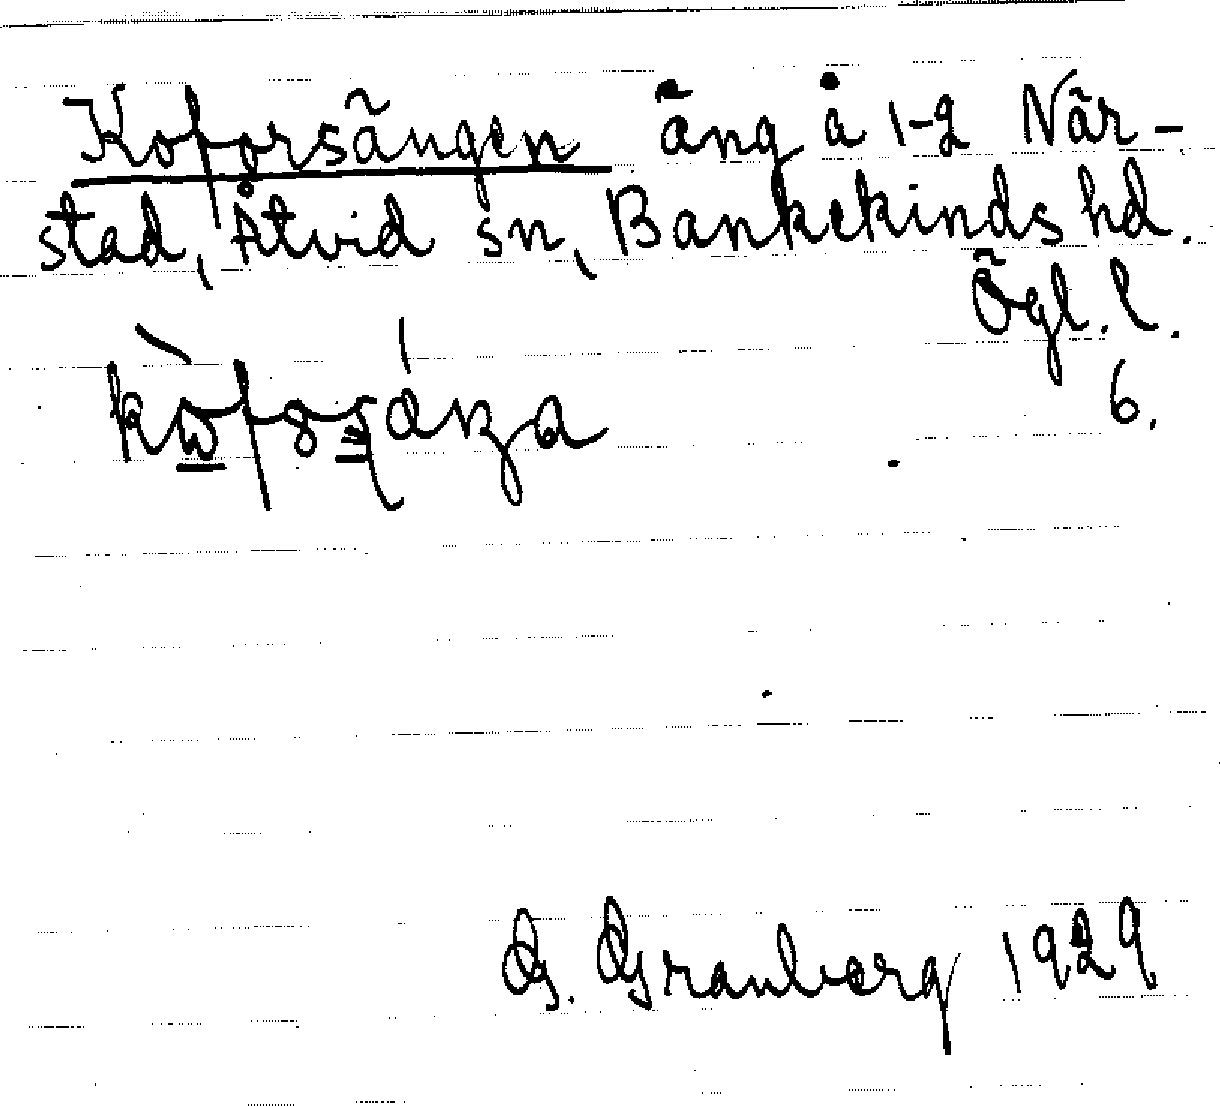 Koforsängen äng å 1-2 När-
stad, Åtvid sn, Bankekinds hd.
Ögl. l.
6.
G. Granberg 1929